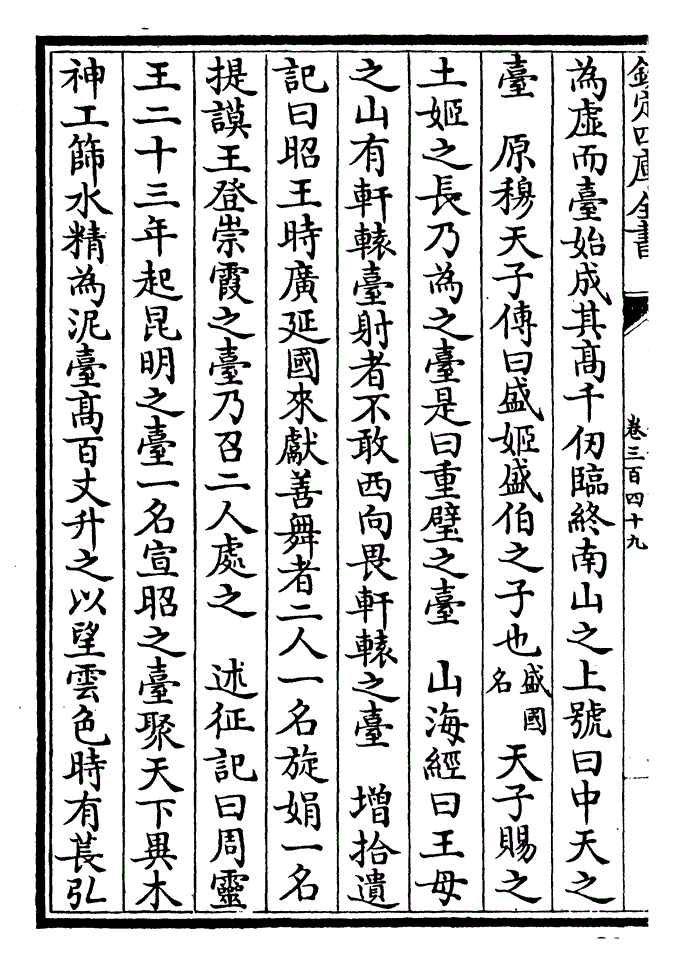 欽定四庫全書
卷三百四十九
為虛而臺始成其髙千仞臨終南山之上號曰中天之
臺　原穆天子傳曰盛姬盛伯之子也盛國名天子賜之
土姬之長乃為之臺是曰重璧之臺　山海經曰王母
之山有軒轅臺射者不敢西向畏軒轅之臺　增拾遺
記曰昭王時廣延國來獻善舞者二人一名旋娟一名
提謨王登崇霞之臺乃召二人處之　述征記曰周靈
王二十三年起昆明之臺一名宣昭之臺聚天下異木
神工篩水精為泥臺髙百丈升之以望雲色時有萇弘